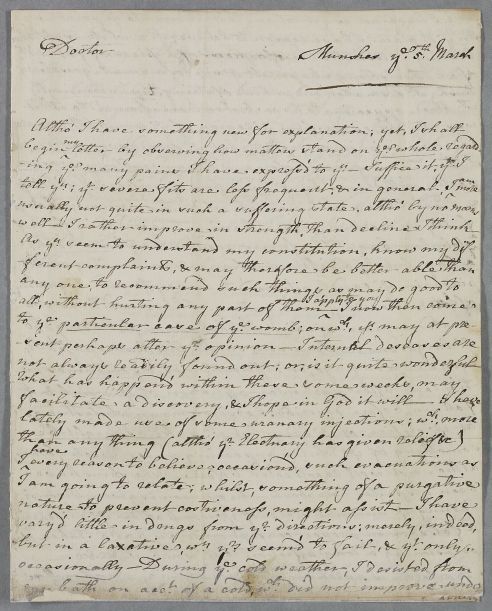 Doctor
Munshes yᵉ 5th March
Altho' I have something new for explanation; yet, I shall
begin my letter by observing how matters stand on yᵉ whole, regard-
ing yᵉ many pains I have express'd to yᵘ - Suffice it yⁿ I
tell yᵘ; yᵉ severe fits are less frequent, & in general I am more
usually not quite in such a suffering state, altho' by no means
well - I rather improve in strength than decline I think
As yᵘ seem to understand my constitution, know my dif-
ferent complaints, & may therefore be better able than
any one to recommend such things as may do good to
all, without hurting any part of them I apply to you - I now then come
to yᵉ particular case of yᵉ womb; on wᶜʰ, yˢ may at pre
sent perhaps alter yʳ opinion - Internal deseases are
not always easily found out; or, is it quite wonderful
What has happend within these some weeks, may
facilitate a discovery, & I hope in God it will - I have
lately made use of some uranary injections; wᶜʰ, more
than any thing (altho' yʳ Electuary has given relief)
I have every reason to believe occasion'd, such evacuations as
I am going to relate; whilst something of a purgative
nature to prevent costiveness, might assist - I have
vary'd little in drugs from yʳ directions; merely, indeed,
but in a laxative wⁿ yʳˢ seem'd to fail, & yᵗ only
occasionally - During yᵉ cold weather, I desisted from
bath on accᵗ of a cold, wᶜʰ did not improve under